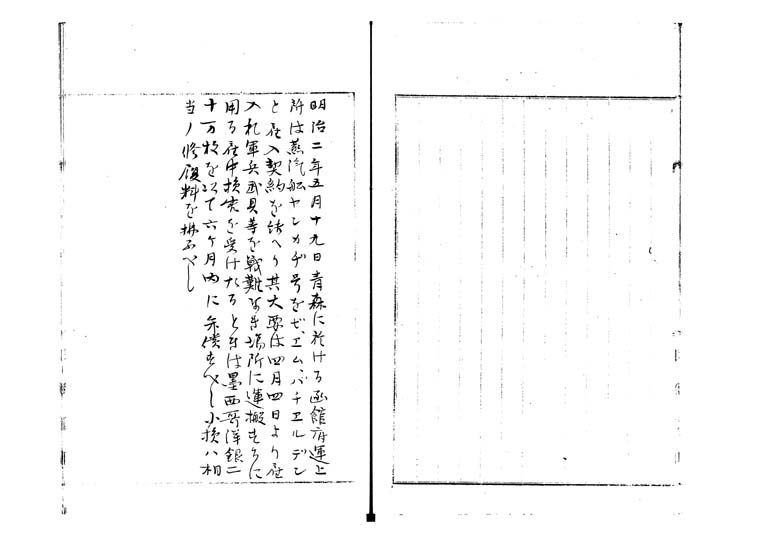 明治二年五月十九日青森に於ける函館府運上
所は蒸汽舩ヤンカヂ号をゼ、エム、バチエルデン
と雇入契約を結へり其大要は四月四日より雇
入れ軍兵武具等を戦難なき場所に運搬するに
用る雇中損害を受けたるときは墨西哥洋銀二
十万枚を以て六ケ月内に弁償すべし小損ハ相
当ノ修履料を拂ふべし